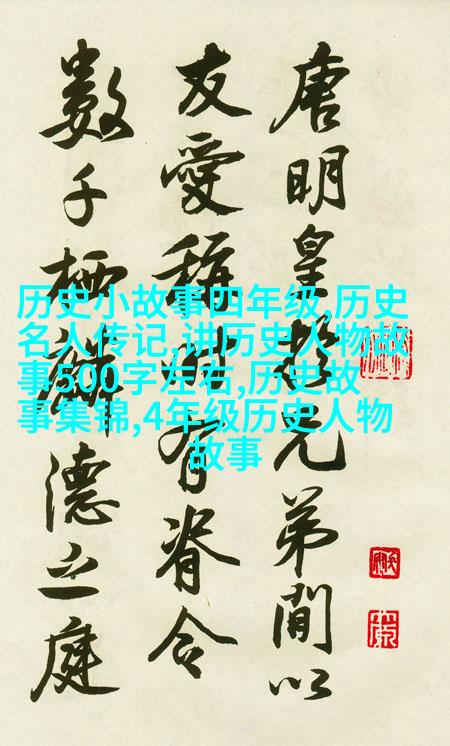 唐明皇於兄弟間以
友愛稱時有脊令
數千栖麟德之庭
历史小故事四年级,历史
名人传记,讲历史人物故
事500字左右,历史故
事集锦,4年级历史人物
故事